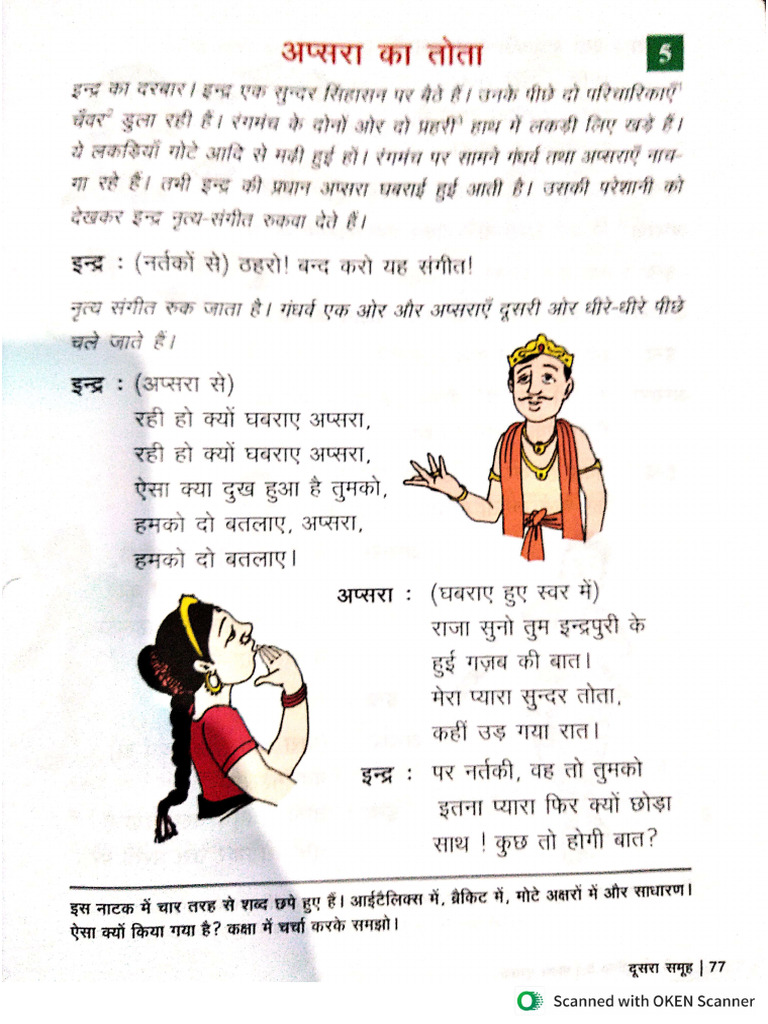 अप्सरा का तोता
5
इन्द्र का दरबार। इन्द्र एक सुन्दर सिंहासन पर बैठे हैं। उनके पीछे दो परिचारिकाएँ¹
चँवर² डुला रही हैं। रंगमंच के दोनों ओर दो प्रहरी³ हाथ में लकड़ी लिए खड़े हैं।
ये लकड़ियाँ गोटे आदि से मढ़ी हुई हों। रंगमंच पर सामने गंधर्व तथा अप्सराएँ नाच-
गा रहे हैं। तभी इन्द्र की प्रधान अप्सरा घबराई हुई आती है। उसकी परेशानी को
देखकर इन्द्र नृत्य-संगीत रुकवा देते हैं।
इन्द्र : (नर्तकों से) ठहरो! बन्द करो यह संगीत!
नृत्य संगीत रुक जाता है। गंधर्व एक ओर और अप्सराएँ दूसरी ओर धीरे-धीरे पीछे
चले जाते हैं।
इन्द्र : (अप्सरा से)
रही हो क्यों घबराए अप्सरा,
रही हो क्यों घबराए अप्सरा,
ऐसा क्या दुख हुआ है तुमको,
हमको दो बतलाए, अप्सरा,
हमको दो बतलाए।
अप्सरा : (घबराए हुए स्वर में)
राजा सुनो तुम इन्द्रपुरी के
हुई गज़ब की बात।
मेरा प्यारा सुन्दर तोता,
कहीं उड़ गया रात।
इन्द्र : पर नर्तकी, वह तो तुमको
इतना प्यारा फिर क्यों छोड़ा
साथ ! कुछ तो होगी बात?
इस नाटक में चार तरह से शब्द छपे हुए हैं। आईटैलिक्स में, ब्रैकिट में, मोटे अक्षरों में और साधारण।
ऐसा क्यों किया गया है? कक्षा में चर्चा करके समझो।
दूसरा समूह | 77
Scanned with OKEN Scanner